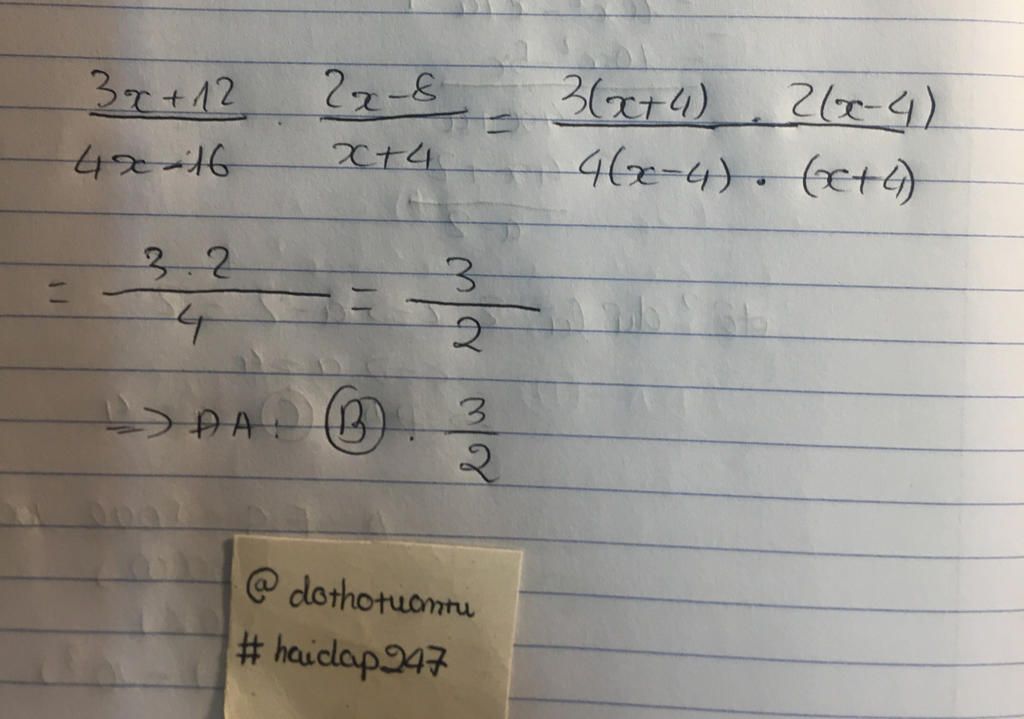 3x+12 / 4x-16 . 2x-8 / x+4 = 3(x+4) . 2(x-4) / 4(x-4) . (x+4)
= 3.2 / 4 = 3 / 2
=> ĐA: B. 3 / 2
@ dothotuantu
# haidap247